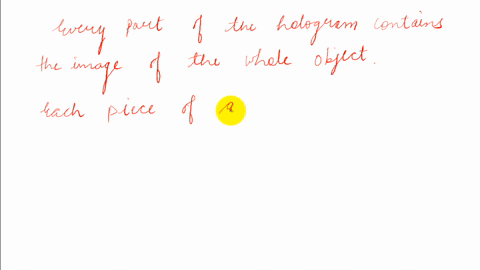 Every part of the hologram contains
the image of the whole object.
Each piece of